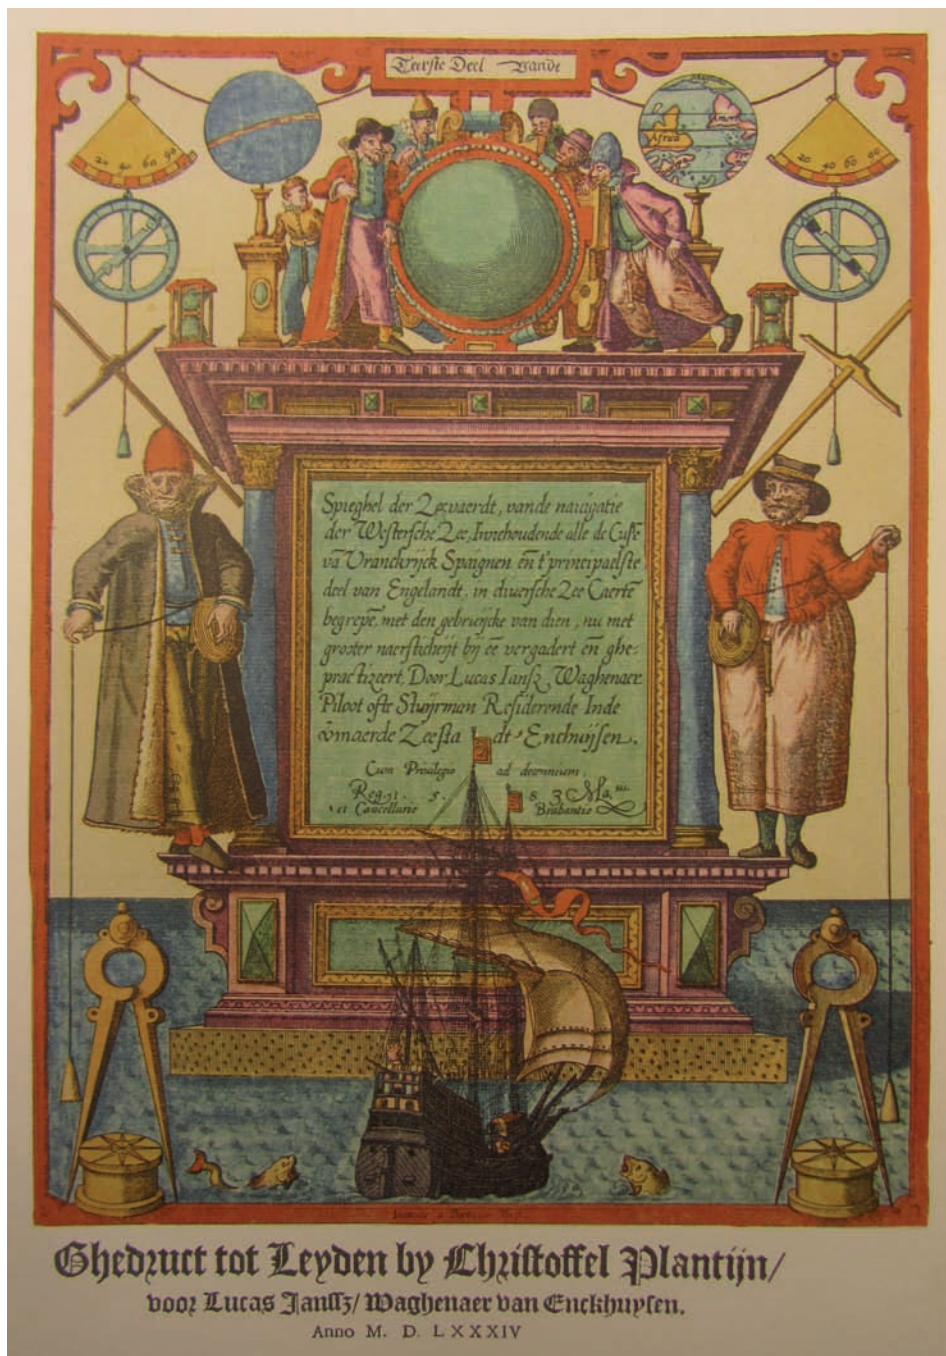 Teerste Deel vande
Africa
20 40 60 90
20 40 60 90
Spieghel der Zeevaerdt, vande nauigatie
der Westersche Zee, Innehoudende alle de Custē
vā Vranckrijck Spaignen en̄ t'principaelste
deel van Engelandt, in diuersche Zee Caertē
begrepē, met den gebruijcke van dien, nu met
grooter naersticheijt bij eē vergadert en̄ ghe-
practizeert, Door Lucas Iansz Waghenaer
Piloot ofte Stuijrman Residerende Inde
vmaerde Zeestadt Enchuijsen.
Cum Priuilegio ad decennium,
Reg. 1 5 8 3 Ma.
et Cancellarie Brabantie
Ghedruct tot Leyden by Christoffel Plantijn/
voor Lucas Jansz/ Waghenaer van Enckhuysen.
Anno M. D. LXXXIV